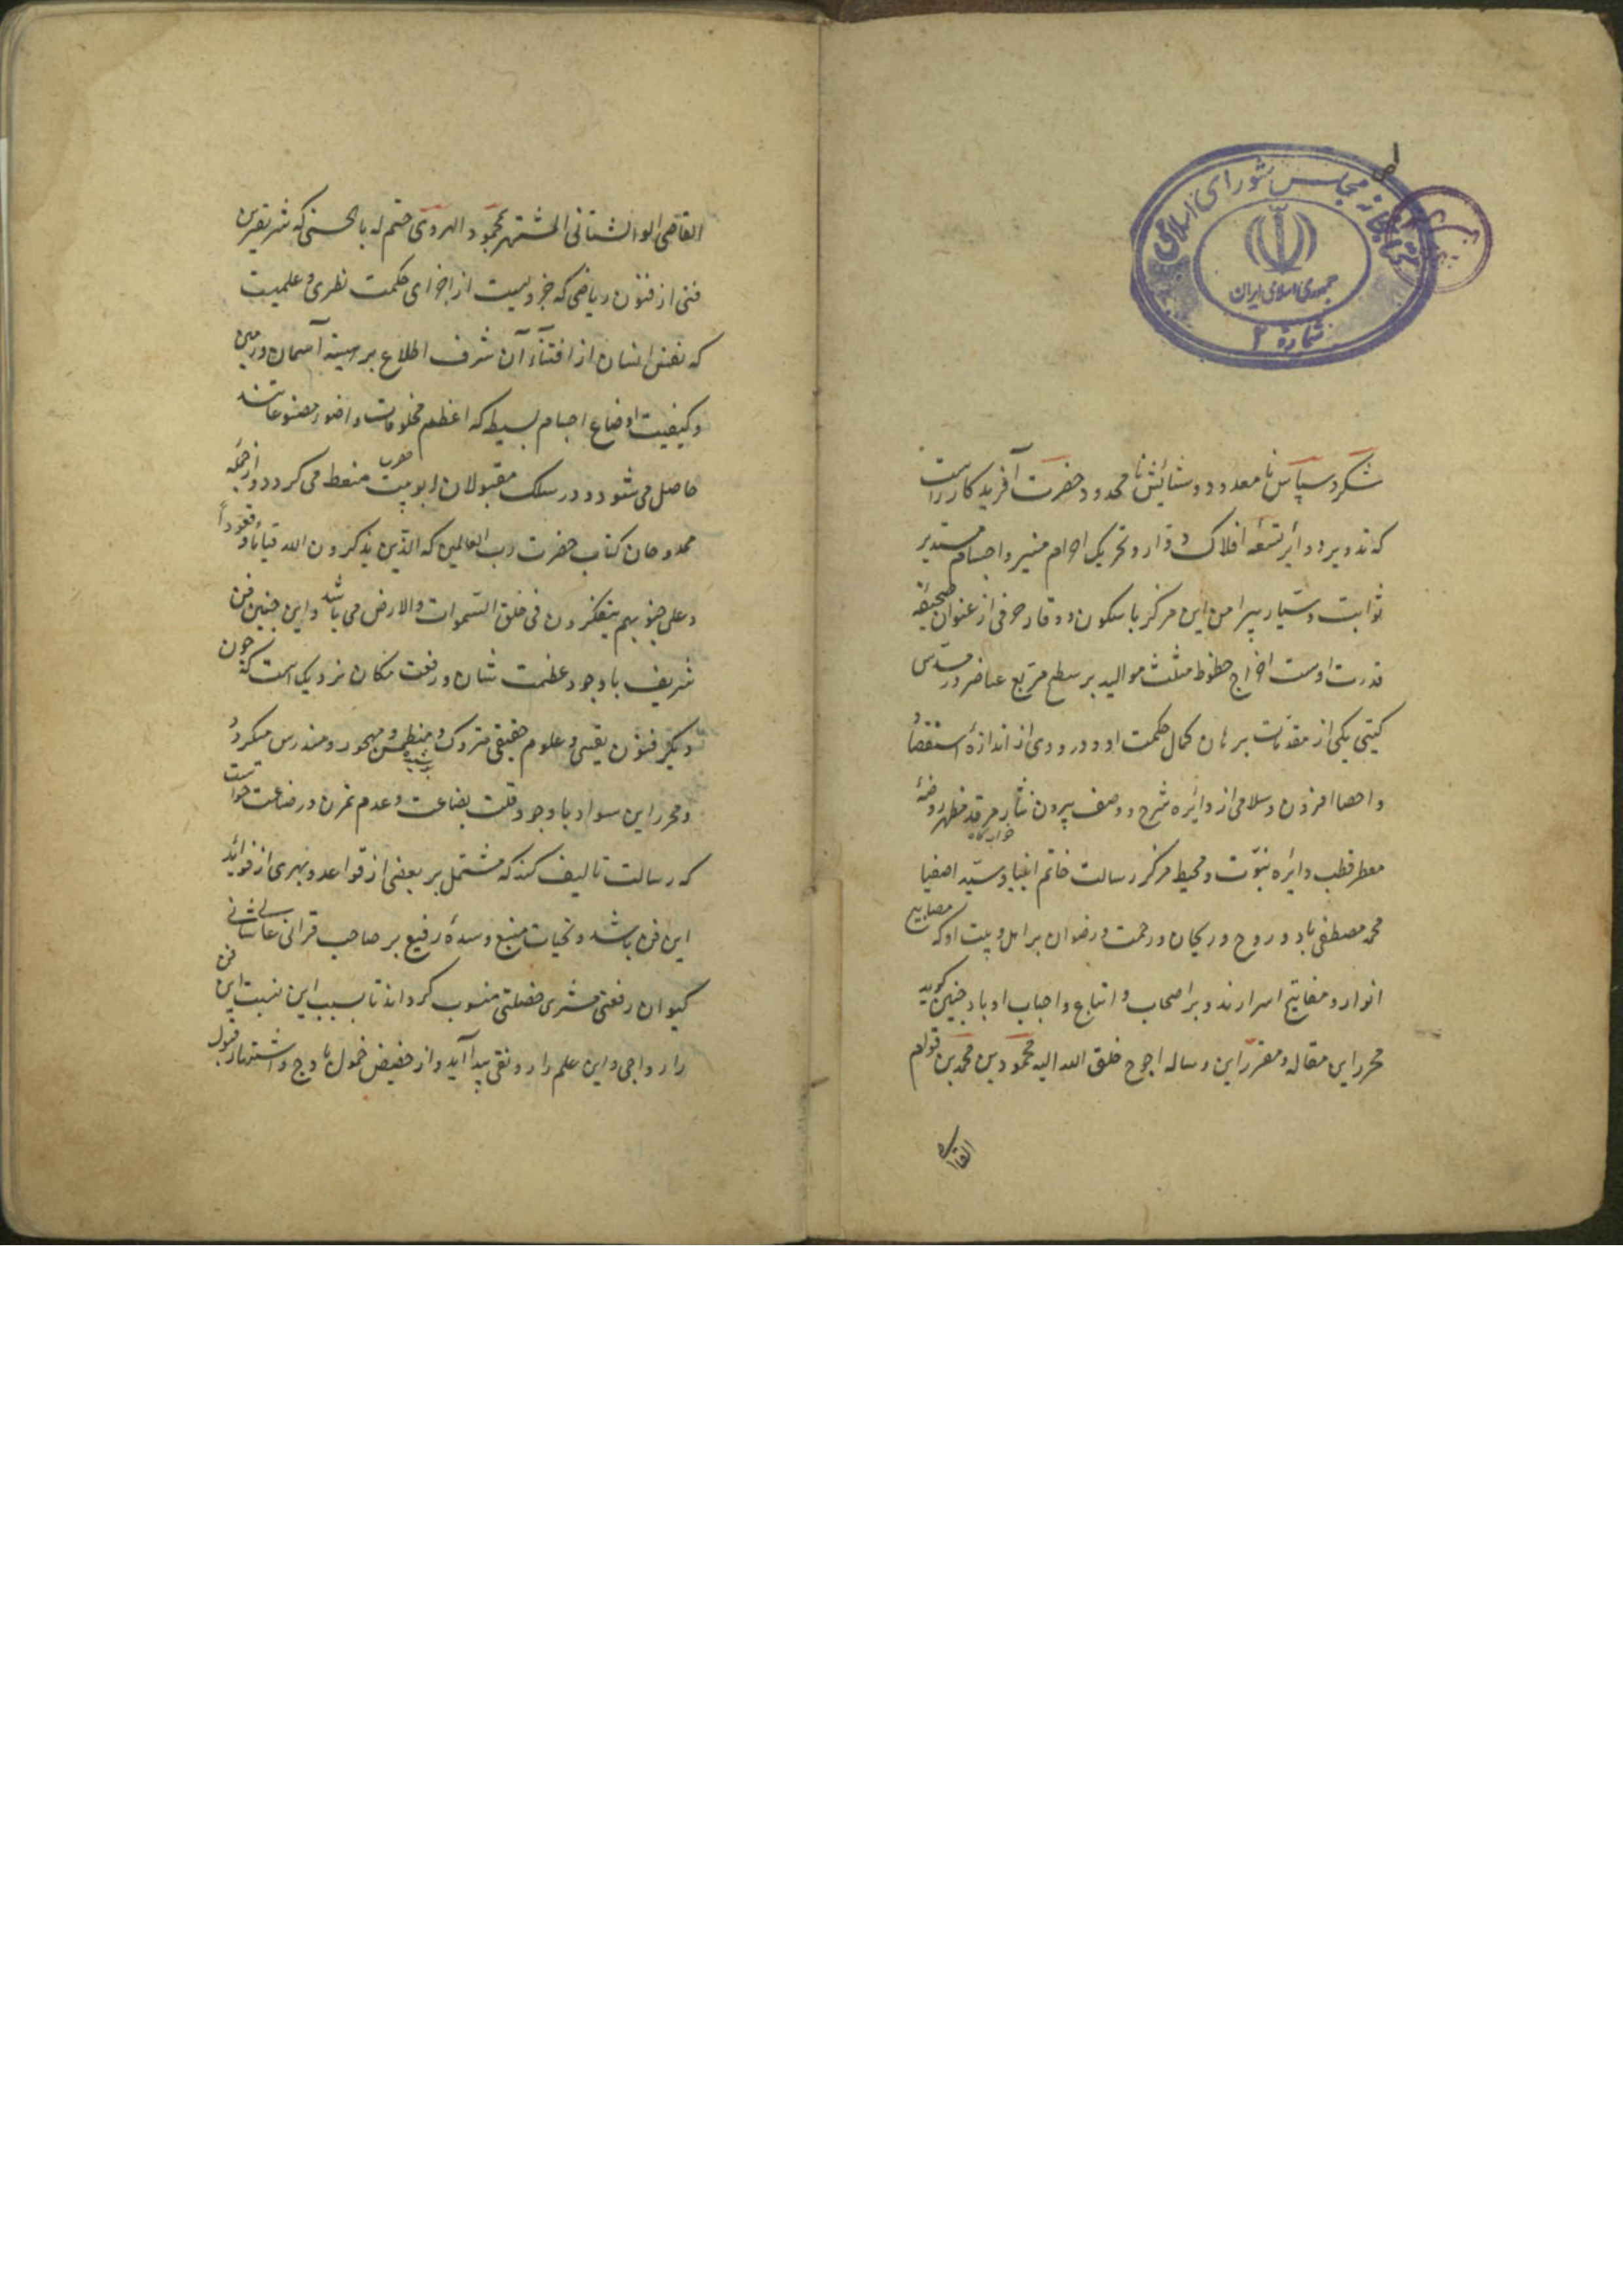 کتابخانه مجلس شورای اسلامی
جمهوری اسلامی ایران
شماره ۲
شکر و سپاس نامعدود و ستایش نامحدود حضرت آفریدکار راست
که تدویر دوایر تسعه افلاک دوّار و تحریک اجرام منیر و اجسام مستدیر
ثوابت و سیّار پیرامن این مرکز با سکون و وقار حرفی از عنوان صحیفه
قدرت اوست اخراج خطوط مثلث موالید بر سطح مربع عناصر در مسدّس
کیتی یکی از مقدّمات برهان کمال حکمت او و درودی از اندازهٔ استقصاء
و احصا افزون و سلامی از دائره شرح و وصف بیرون نثار مرقد مطهر و روضهٔ
خوابکاه
معطر قطب دائره نبوّت و محیط مرکز رسالت خاتم انبیا و سیّد اصفیا
محمد مصطفی باد و روح و ریحان و رحمت و رضوان بر اهل و بیت او که مصابیح
انوار و مفاتیح اسرارند و بر اصحاب و اتباع و احباب او باد چنین کوید
محرر این مقاله و مقرّر این رساله احوج خلق الله الیه محمود بن محمد بن قوام
القاضی
القاضی الوالشتانی المشتهر بمحمود الهروی ختم له بالحسنی که شریفترین
فنی از فنون ریاضی که جزویست از اجزای حکمت نظری و علمیست
که نفس انسان از اقتناء آن شرف اطلاع بر هیئة آسمان و زمین
و کیفیت اوضاع اجسام بسیط که اعظم مخلوقات و اضوء مصنوعاتند
حاصل می شود و در سلک مقبولان ربوبیت منعط می کردد و از جمله
ممدوحان کتاب حضرت رب العالمین که الذین یذکرون الله قیاما و قعوداً
و علی جنوبهم یتفکرون فی خلق السّموات والارض می باشد و این چنین فن
شریف با وجود عظمت شان و رفعت مکان نزدیک است که چون
دیکر فنون یقینی و علوم حقیقی متروک و منطمس و مهجور و مندرس میکردد
و محرر این سواد با وجود قلت بضاعت و عدم تمرن در صناعت خواست
که رسالت تالیف کند که مشتمل بر بعضی از قواعد و بهری از فوائد
این فن باشد و تحیات منیع و سدهٔ رفیع بر صاحب قرانی عالیشانی
کیوان رفعتی مشتری خصلتی منسوب کرداند تا بسبب این نسبت این فن
را رواجی و این علم را رونقی پیدا آید و از حضیض خمول باوج و اشتهار و قبول